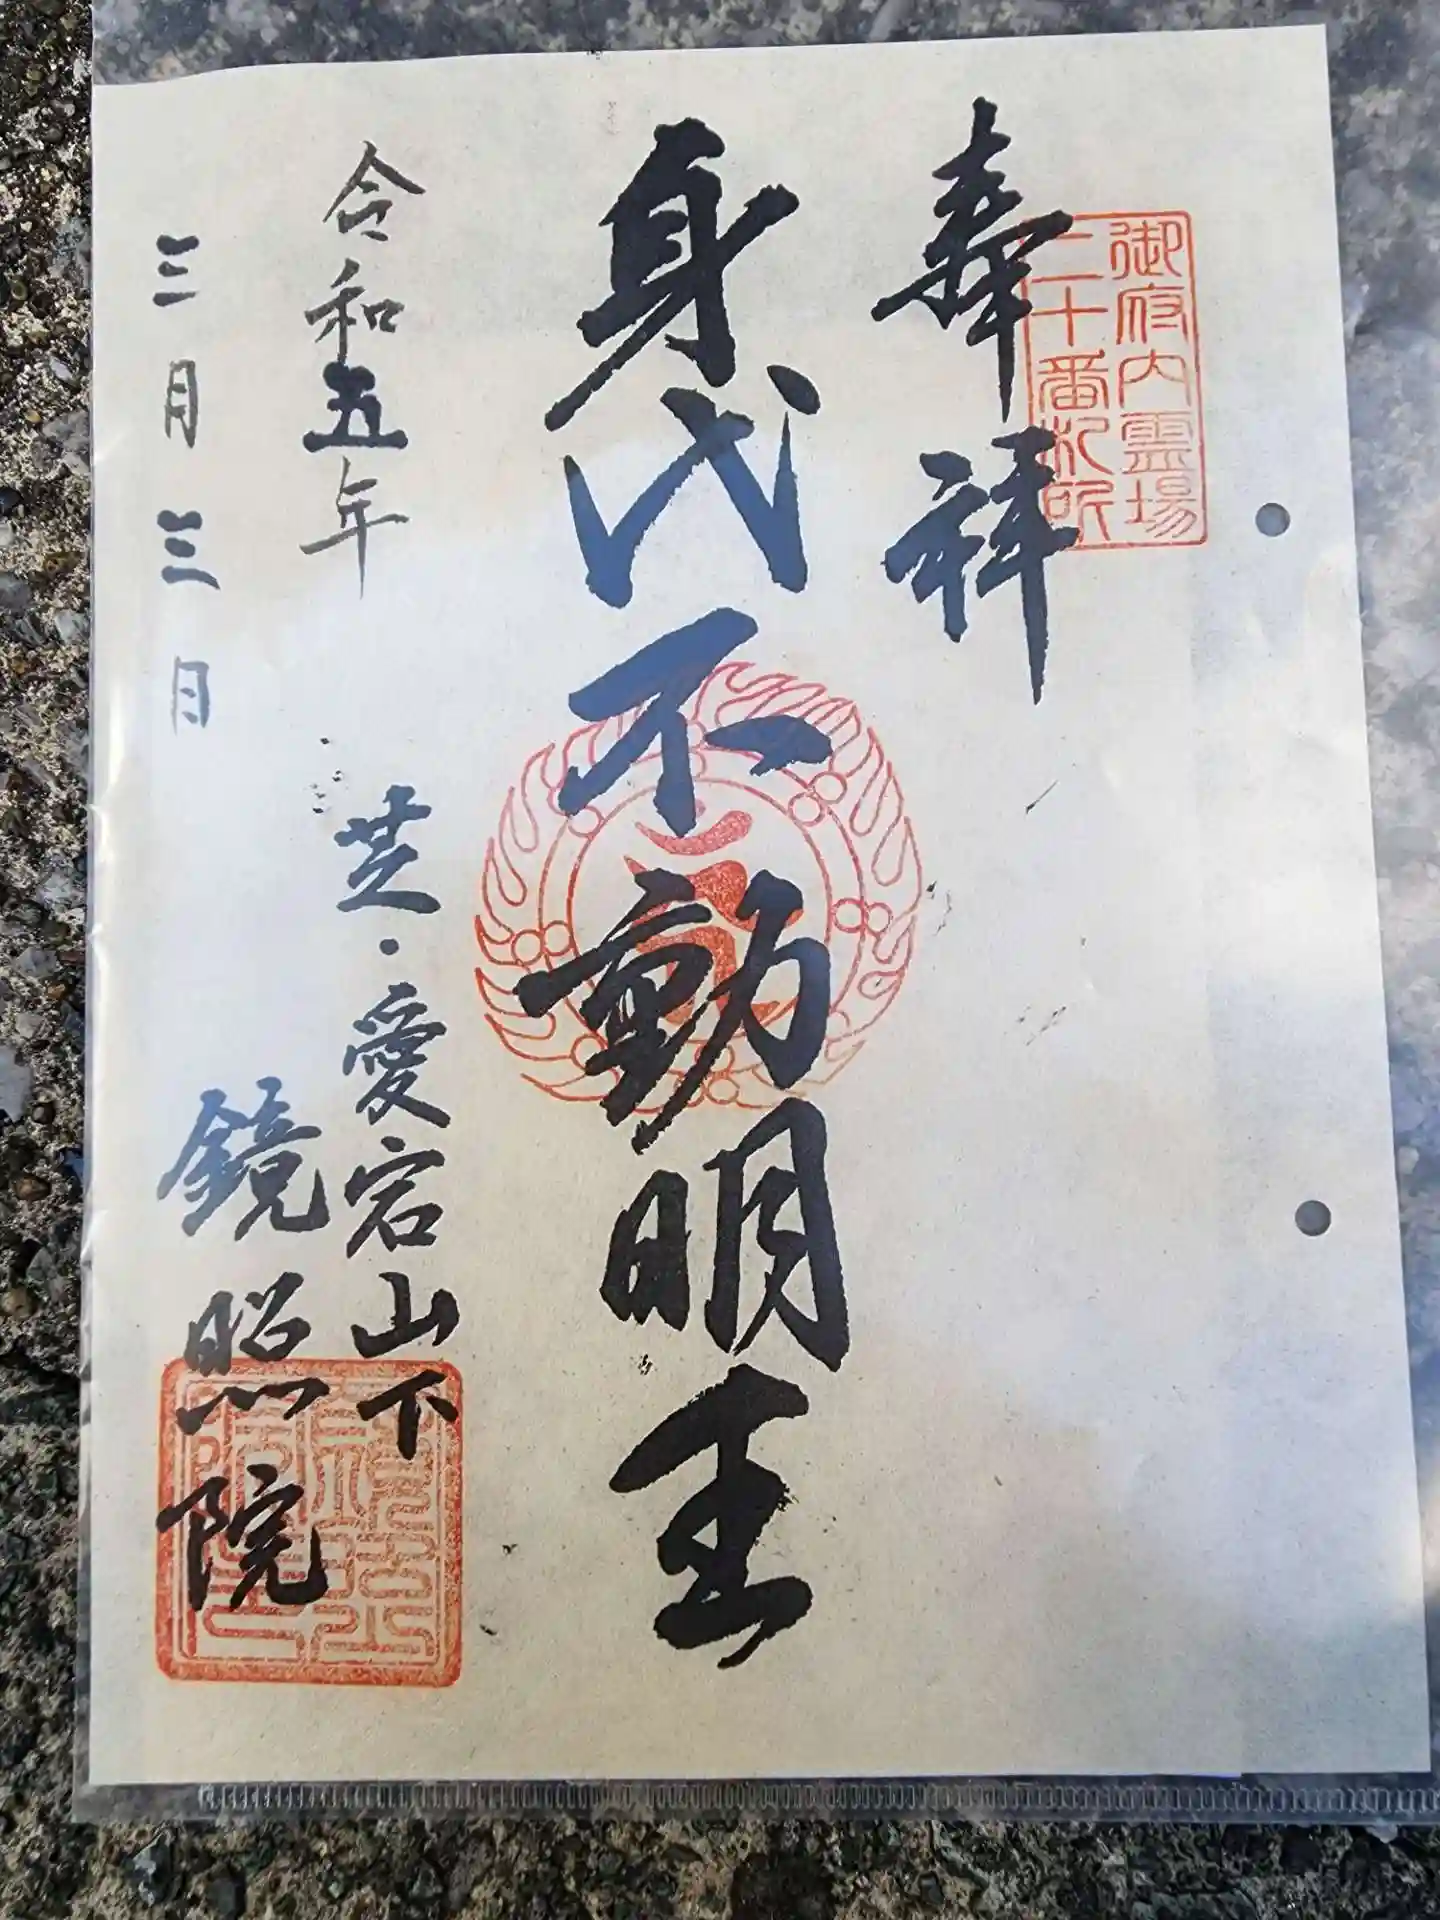 御府内霊場
二十番札所
奉拝
身代不動明王
令和五年
三月三日
芝・愛宕山下
鏡照院